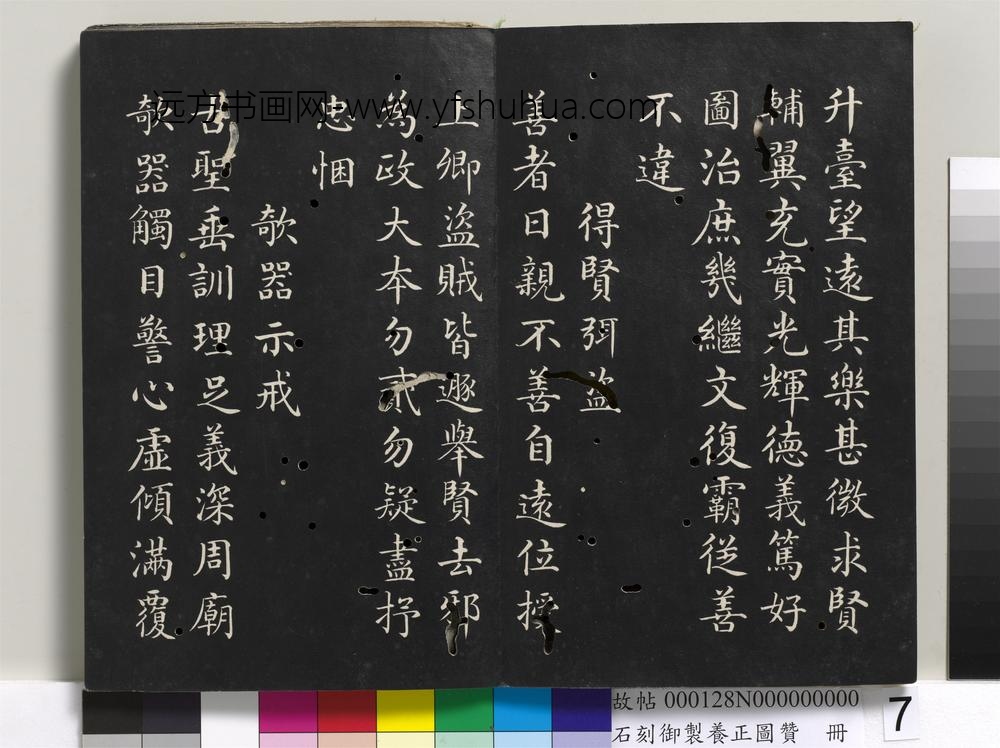 升臺望遠其樂甚微求賢
輔翼充實光輝德義篤好
圖治庶幾繼文復霸從善
不違
得賢弭盜
善者日親不善自遠位授
上卿盜賊皆遯舉賢去邪
為政大本勿貳勿疑盡抒
忠悃
欹器示戒
古聖垂訓理足義深周廟
欹器觸目警心虛傾滿覆
远方书画网-www.yfshuhua.com
故帖 000128N000000000
石刻御製養正圖贊 冊
7